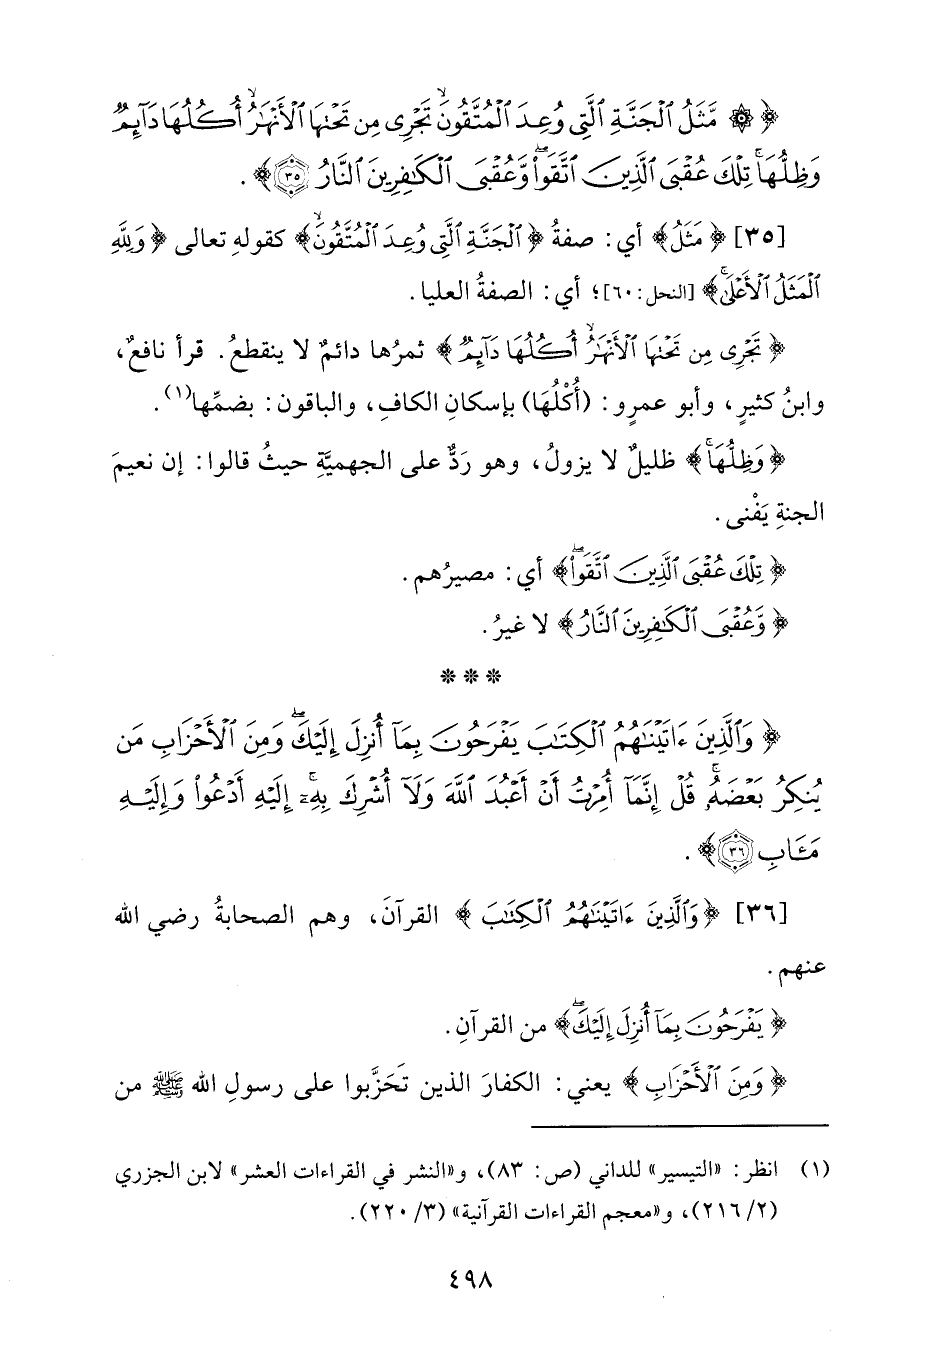 ﴿ ۞ مَّثَلُ ٱلْجَنَّةِ ٱلَّتِى وُعِدَ ٱلْمُتَّقُونَ ۙ تَجْرِى مِن تَحْتِهَا ٱلْأَنْهَـٰرُ ۙ أُكُلُهَا دَآئِمٌ
وَظِلُّهَا ۚ تِلْكَ عُقْبَى ٱلَّذِينَ ٱتَّقَوا۟ ۖ وَّعُقْبَى ٱلْكَـٰفِرِينَ ٱلنَّارُ ۝٣٥ ﴾ .
[٣٥] ﴿ مَثَلُ ﴾ أي: صفةُ ﴿ ٱلْجَنَّةِ ٱلَّتِى وُعِدَ ٱلْمُتَّقُونَ ۙ ﴾ كقولهِ تعالى ﴿ وَلِلَّهِ
ٱلْمَثَلُ ٱلْأَعْلَىٰ ۚ ﴾ [النحل: ٦٠]؛ أي: الصفةُ العليا.
﴿ تَجْرِى مِن تَحْتِهَا ٱلْأَنْهَـٰرُ ۙ أُكُلُهَا دَآئِمٌ ﴾ ثمرُها دائمٌ لا ينقطعُ. قرأ نافعٌ،
وابنُ كثيرٍ، وأبو عمرٍو: (أُكْلُهَا) بإسكانِ الكافِ، والباقون: بضمِّها(١).
﴿ وَظِلُّهَا ۚ ﴾ ظليلٌ لا يزولُ، وهو ردٌّ على الجهميَّةِ حيثُ قالوا: إن نعيمَ
الجنةِ يَفْنى.
﴿ تِلْكَ عُقْبَى ٱلَّذِينَ ٱتَّقَوا۟ ۖ ﴾ أي: مصيرُهم.
﴿ وَّعُقْبَى ٱلْكَـٰفِرِينَ ٱلنَّارُ ﴾ لا غيرُ.
* * *
﴿ وَٱلَّذِينَ ءَاتَيْنَـٰهُمُ ٱلْكِتَـٰبَ يَفْرَحُونَ بِمَآ أُنزِلَ إِلَيْكَ ۖ وَمِنَ ٱلْأَحْزَابِ مَن
يُنكِرُ بَعْضَهُۥ ۚ قُلْ إِنَّمَآ أُمِرْتُ أَنْ أَعْبُدَ ٱللَّهَ وَلَآ أُشْرِكَ بِهِۦٓ ۚ إِلَيْهِ أَدْعُوا۟ وَإِلَيْهِ
مَـَٔابِ ۝٣٦ ﴾ .
[٣٦] ﴿ وَٱلَّذِينَ ءَاتَيْنَـٰهُمُ ٱلْكِتَـٰبَ ﴾ القرآنَ، وهم الصحابةُ رضي الله
عنهم.
﴿ يَفْرَحُونَ بِمَآ أُنزِلَ إِلَيْكَ ۖ ﴾ من القرآنِ.
﴿ وَمِنَ ٱلْأَحْزَابِ ﴾ يعني: الكفارَ الذين تَحَزَّبوا على رسولِ الله ﷺ من
(١) انظر: «التيسير» للداني (ص: ٨٣)، و«النشر في القراءات العشر» لابن الجزري
(٢/ ٢١٦)، و«معجم القراءات القرآنية» (٣/ ٢٢٠).
٤٩٨